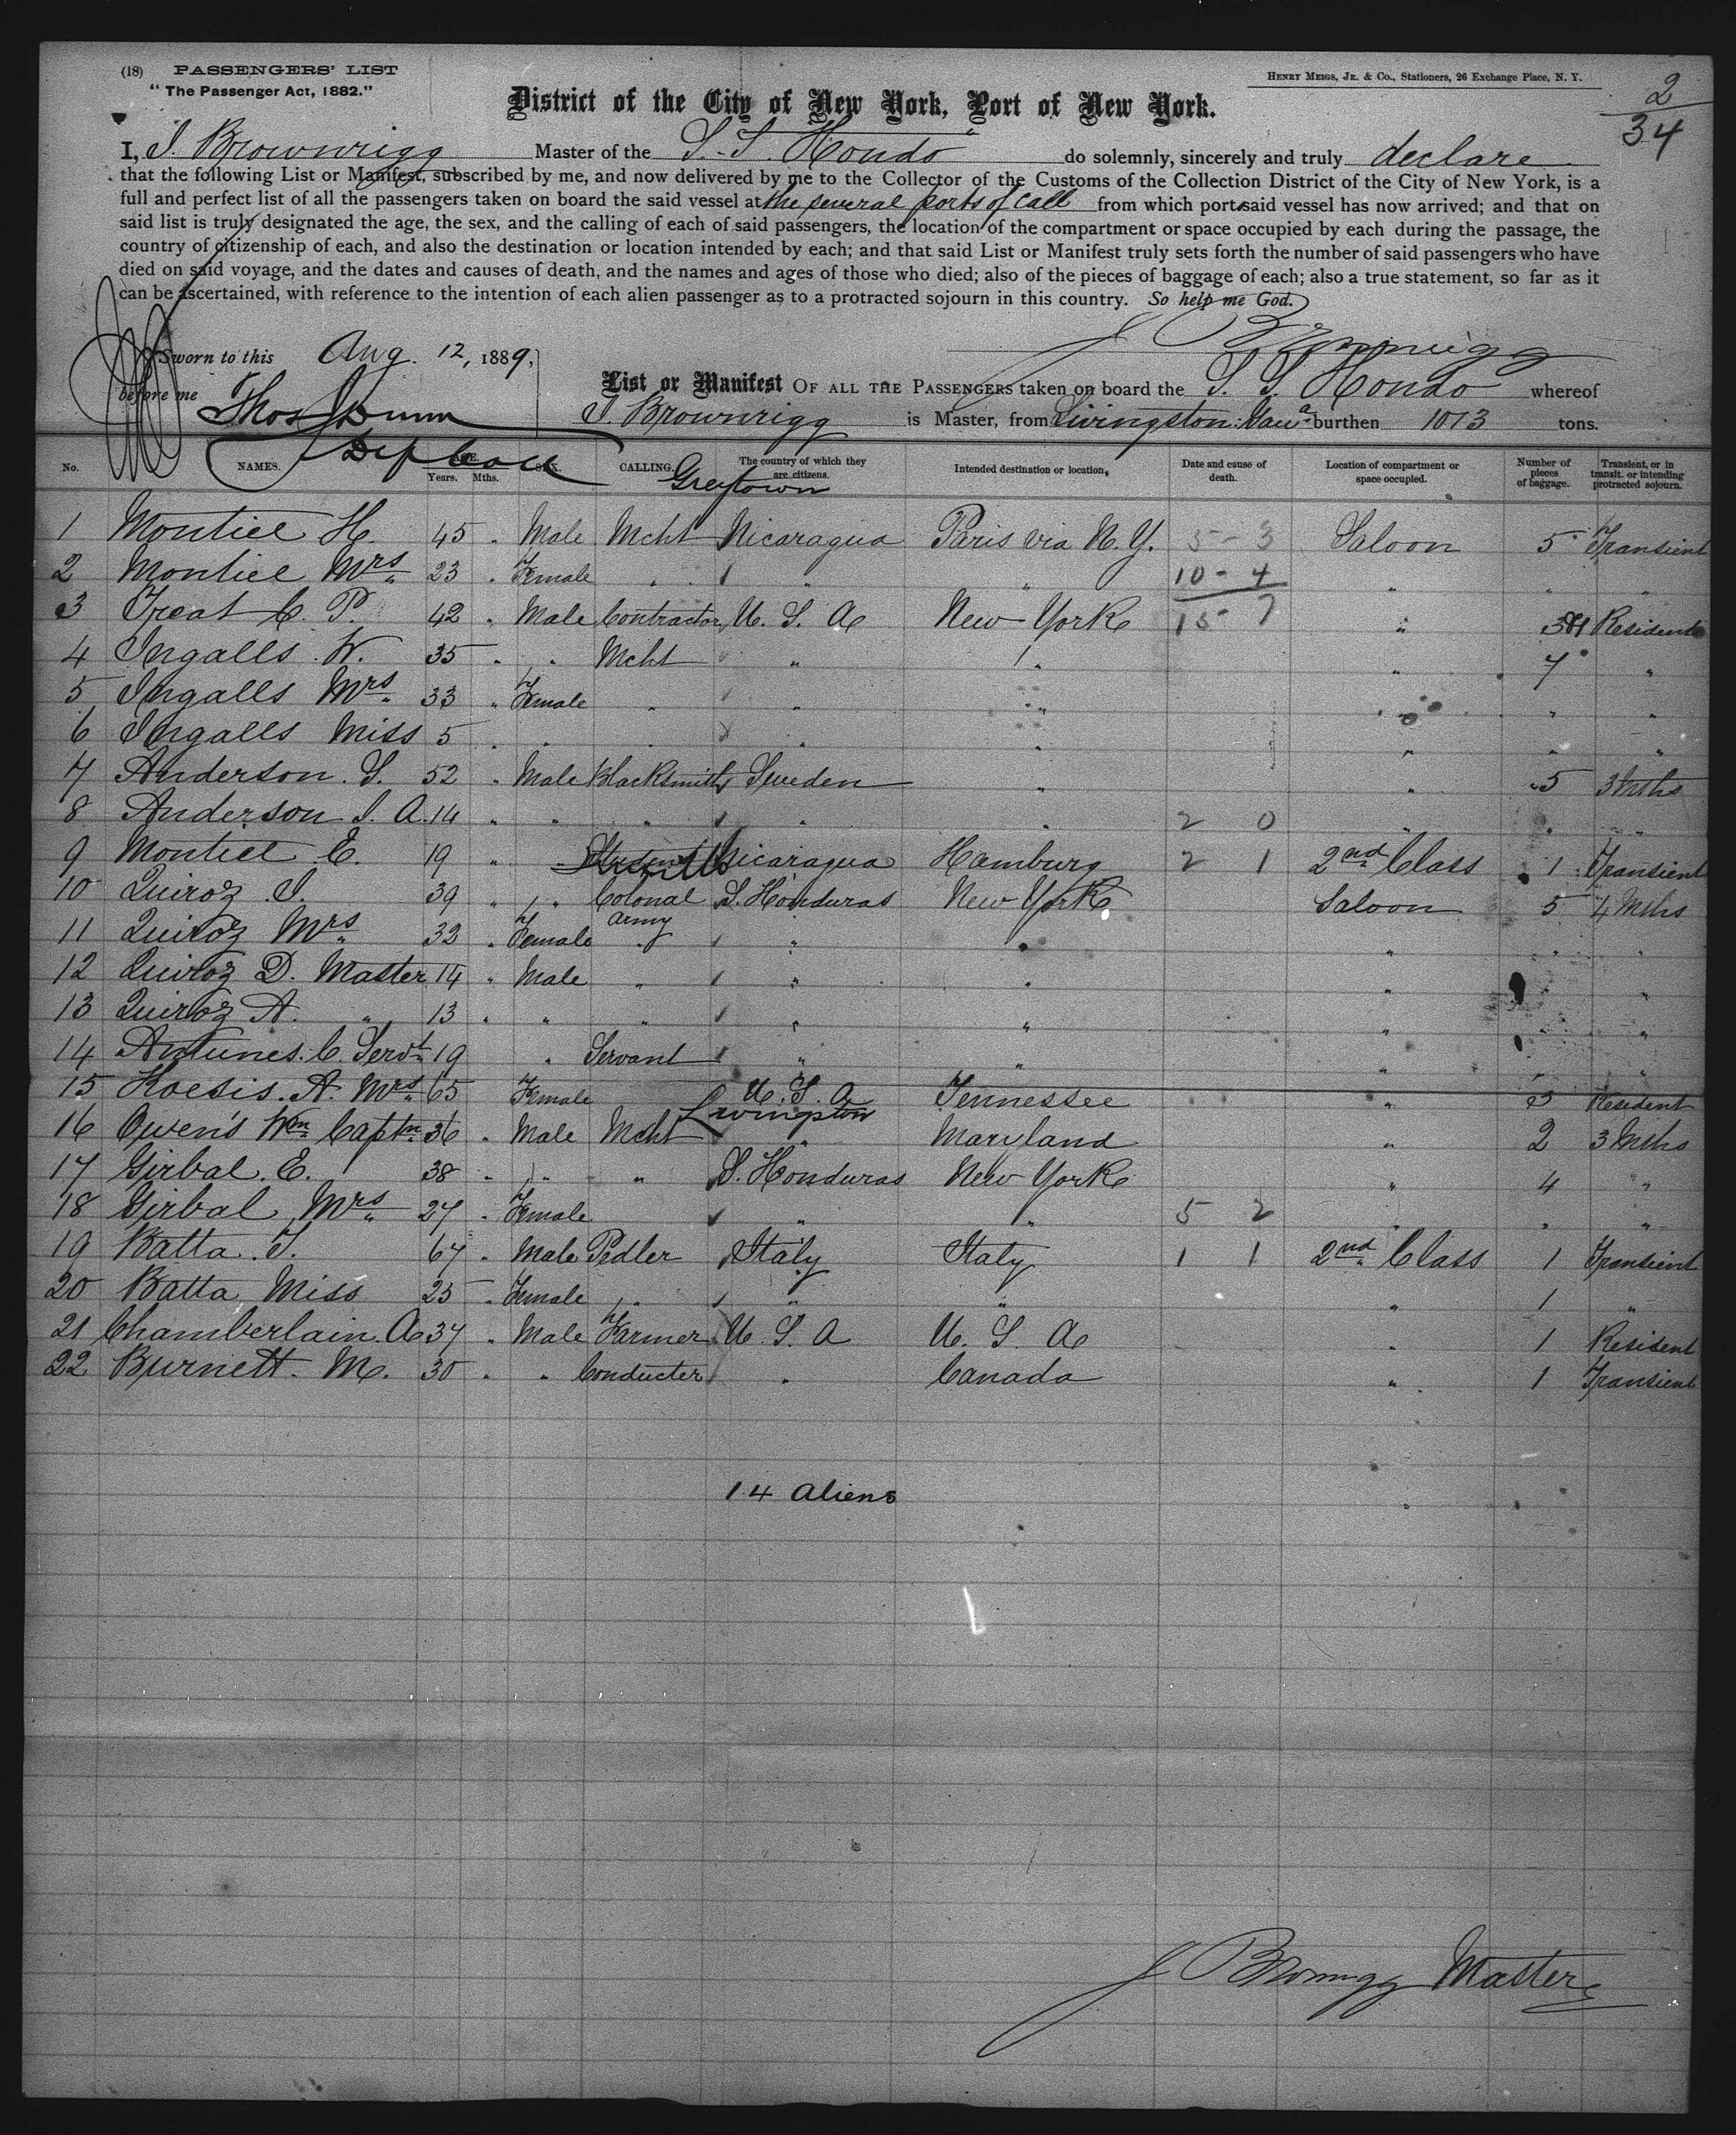 (18) PASSENGERS' LIST
HENRY MEIGS, JR. & CO., Stationers, 26 Exchange Place, N. Y.
"The Passenger Act, 1882."
2
34
District of the City of New York, Port of New York.
I, J. Brownrigg Master of the S.S. Hondo do solemnly, sincerely and truly declare
that the following List or Manifest, subscribed by me, and now delivered by me to the Collector of the Customs of the Collection District of the City of New York, is a
full and perfect list of all the passengers taken on board the said vessel at the several ports of call from which port said vessel has now arrived; and that on
said list is truly designated the age, the sex, and the calling of each of said passengers, the location of the compartment or space occupied by each during the passage, the
country of citizenship of each, and also the destination or location intended by each; and that said List or Manifest truly sets forth the number of said passengers who have
died on said voyage, and the dates and causes of death, and the names and ages of those who died; also of the pieces of baggage of each; also a true statement, so far as it
can be ascertained, with reference to the intention of each alien passenger as to a protracted sojourn in this country. So help me God.
J Brownrigg
Sworn to this Aug. 12, 1889,
before me Thos Dunn
Dep Coll
List or Manifest OF ALL THE PASSENGERS taken on board the S. S. Hondo whereof
J. Brownrigg is Master, from Livingston burthen 1013 tons.
No. NAMES. AGE. Years. Mths. SEX. CALLING. The country of which they are citizens. Intended destination or location, Date and cause of death. Location of compartment or space occupied. Number of pieces of baggage. Transient, or in transit, or intending protracted sojourn.
Greytown
1 Montiel H. 45 " Male Mcht Nicaragua Paris via N. Y. 5 - 3 Saloon 5 Transient
2 Montiel Mrs 23 " Female " " " 10 - 4 " " "
3 Treat C. P. 42 " Male Contractor U. S. A New York 15 - 7 " Resident
4 Ingalls W. 35 " " Mcht " " " 7 "
5 Ingalls Mrs 33 " Female " " " " " "
6 Ingalls Miss 5 " " " " " " " "
7 Anderson. S. 52 " Male Blacksmith Sweden " " 5 3 Mths
8 Anderson J. A. 14 " " " " " 2 0 " " "
9 Montiel E. 19 " " Nicaragua Hamburg 2 1 2nd Class 1 Transient
10 Quiroz J. 39 " " Colonal S. Honduras New York Saloon 5 4 Mths
army
11 Quiroz Mrs 32 " Female " " " " " "
12 Quiroz D. Master 14 " Male " " " " " "
13 Quiroz A. " 13 " " " " " " " "
14 Antunes. C. Servt 19 " Servant " " " " "
15 Koesis. A. Mrs 65 Female U. S. A Tennessee " 3 Resident
Livingston
16 Owen's Wm Captn 36 " Male Mcht " Maryland " 2 3 Mths
17 Girbal. E. 38 " " " S. Honduras New York " 4 "
18 Girbal Mrs 27 " Female " " 5 2 " " "
19 Batta. J. 67 " Male Pedler Italy Italy 1 1 2nd Class 1 Transient
20 Batta Miss 25 " Female " " " " 1 "
21 Chamberlain A 34 " Male Farmer U. S. A U. S. A " 1 Resident
22 Burnett. M. 30 " " Conducter " Canada " 1 Transient
14 aliens
J Brownrigg Master